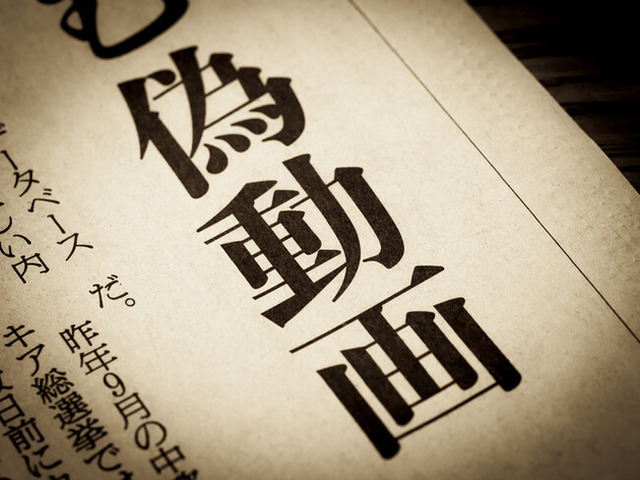 偽動画
だ。
昨年9月の中
キア総選挙で
日前に
ータベース
い内